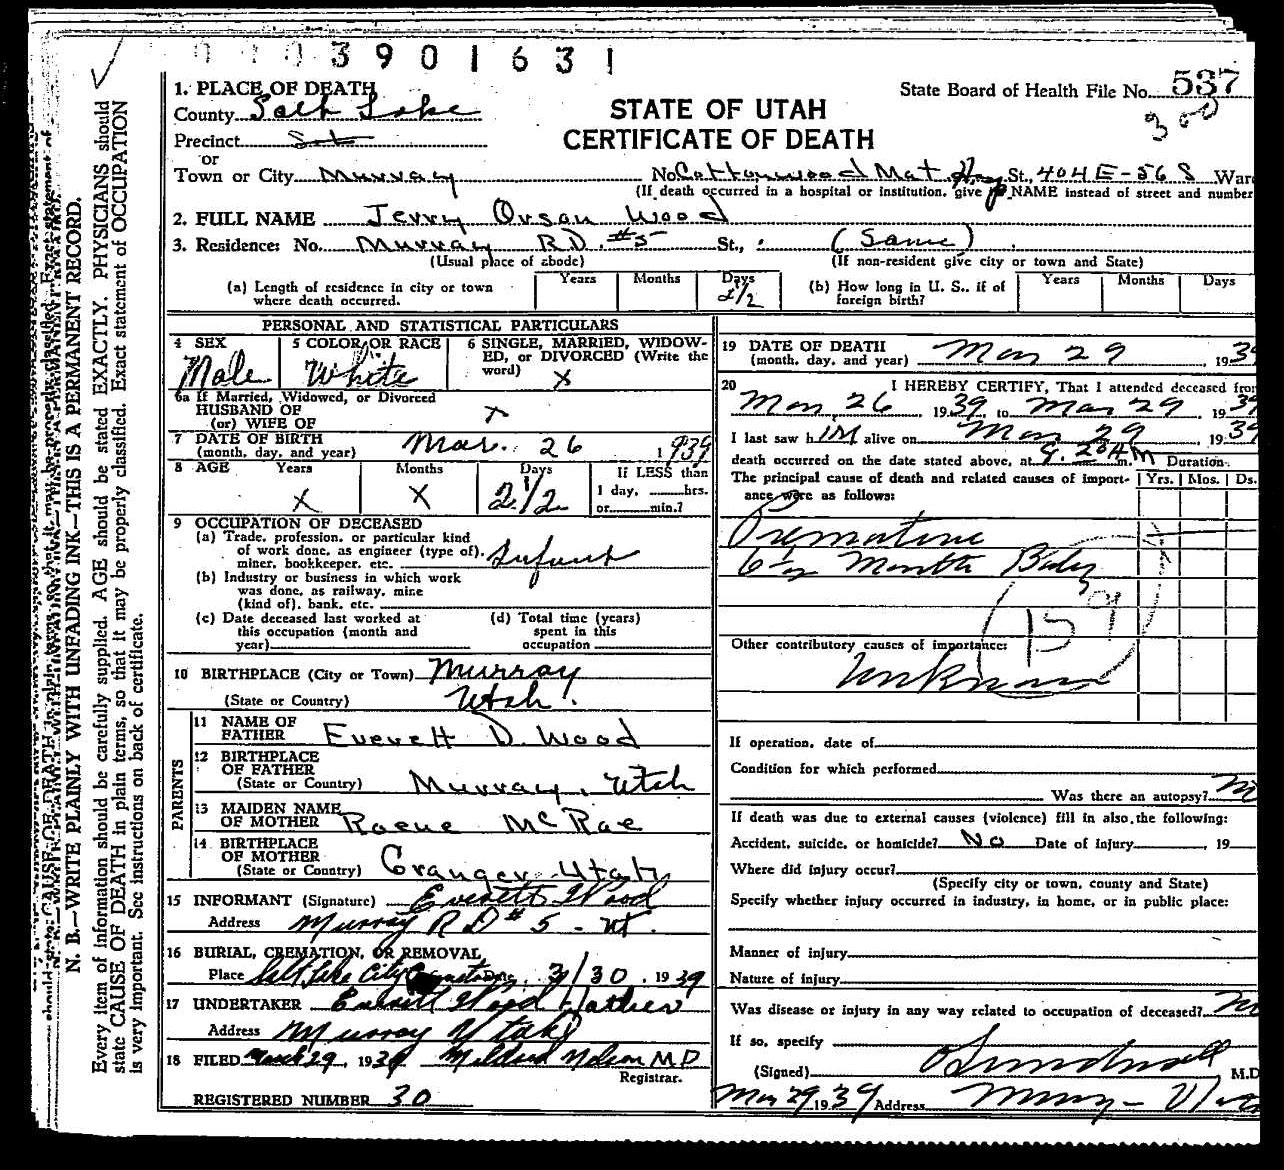 0003901631
1. PLACE OF DEATH
State Board of Health File No. 537
County Salt Lake
STATE OF UTAH
300
Precinct
CERTIFICATE OF DEATH
or
Town or City Murray No. Cottonwood Mat. Hosp St., 404 E-56 S Ward
(If death occurred in a hospital or institution, give its NAME instead of street and number
2. FULL NAME Jerry Orson Wood
3. Residence: No. Murray RD. #5 St., (Same)
(Usual place of abode) (If non-resident give city or town and State)
(a) Length of residence in city or town where death occurred. Years Months Days 2 1/2
(b) How long in U. S., if of foreign birth? Years Months Days
PERSONAL AND STATISTICAL PARTICULARS
4 SEX Male
5 COLOR OR RACE White
6 SINGLE, MARRIED, WIDOWED, or DIVORCED (Write the word) X
6a If Married, Widowed, or Divorced
HUSBAND OF
(or) WIFE OF X
7 DATE OF BIRTH
(month, day, and year) Mar. 26 1939
8 AGE Years X Months X Days 2 1/2 If LESS than
1 day, hrs.
or min.?
9 OCCUPATION OF DECEASED
(a) Trade, profession, or particular kind
of work done, as engineer (type of),
miner, bookkeeper, etc. Infant
(b) Industry or business in which work
was done, as railway, mine
(kind of), bank, etc.
(c) Date deceased last worked at
this occupation (month and
year)
(d) Total time (years)
spent in this
occupation
10 BIRTHPLACE (City or Town) Murray
(State or Country) Utah.
PARENTS
11 NAME OF
FATHER Everett D. Wood
12 BIRTHPLACE
OF FATHER
(State or Country) Murray, Utah
13 MAIDEN NAME
OF MOTHER Raene McRae
14 BIRTHPLACE
OF MOTHER
(State or Country) Granger Utah
15 INFORMANT (Signature) Everett Wood
Address Murray RD #5 - Ut.
16 BURIAL, CREMATION, OR REMOVAL
Place Salt Lake City 3/30 1939
17 UNDERTAKER Everett Wood Father
Address Murray Utah
18 FILED March 29, 1939 Mildred Nelson M D
Registrar.
REGISTERED NUMBER 30
19 DATE OF DEATH
(month, day, and year) Mar 29 1939
20 I HEREBY CERTIFY, That I attended deceased from
Mar 26 1939, to Mar 29 1939
I last saw him alive on Mar 29 1939
death occurred on the date stated above, at 9.20 A m. Duration
The principal cause of death and related causes of importance were as follows: Yrs. Mos. Ds.
Premature
6 1/2 Month Baby
159
Other contributory causes of importance:
Unknown
If operation, date of
Condition for which performed
Was there an autopsy?
If death was due to external causes (violence) fill in also the following:
Accident, suicide, or homicide? No Date of Injury , 19
Where did injury occur?
(Specify city or town, county and State)
Specify whether injury occurred in industry, in home, or in public place:
Manner of injury
Nature of injury
Was disease or injury in any way related to occupation of deceased?
If so, specify
(Signed) M.D
Mar 29 1939 Address Murray - Utah
N. B.—WRITE PLAINLY WITH UNFADING INK—THIS IS A PERMANENT RECORD.
Every item of information should be carefully supplied. AGE should be stated EXACTLY. PHYSICIANS should
state CAUSE OF DEATH in plain terms, so that it may be properly classified. Exact statement of OCCUPATION
is very important. See instructions on back of certificate.